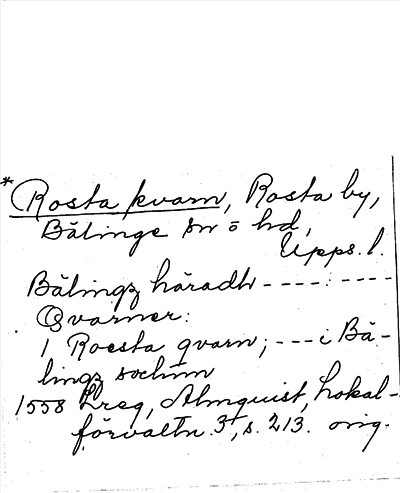 * Rosta kvarn, Rosta by,
Bälinge sn o hd,
Upps. l.
Bälingz häradh - - - - : - - - -
Qvarner:
1 Roesta qvarn; - - - i Bä-
lingz sochnn
1558 Lreg, Almquist, Lokal-
förvaltn. 3, s. 213. orig.